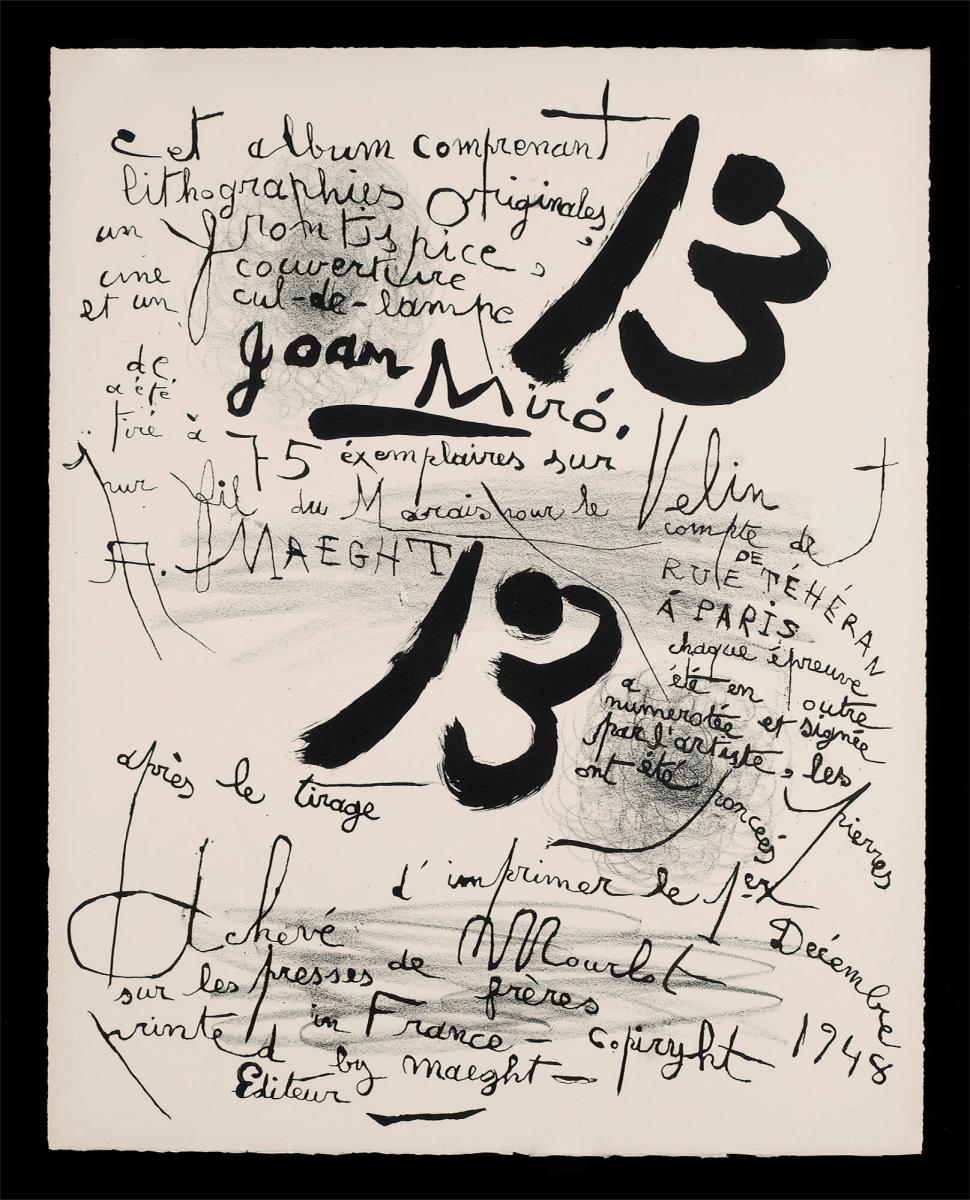 cet album comprenant 13
lithographies originales,
un frontispice,
une couverture
et un cul-de-lampe
de Joan Miró.
a été
tiré à 75 exemplaires sur Velin
pur fil du Marais pour le compte de
A. MAEGHT
13
RUE DE TÉHÉRAN
À PARIS
chaque épreuve
a été en outre
numerotée et signée
par l'artiste, les pierres
ont été poncées
après le tirage
Achevé d'imprimer le 1er Décembre 1948
sur les presses de Mourlot
frères
printed in France - copiryht
by maeght -
Editeur